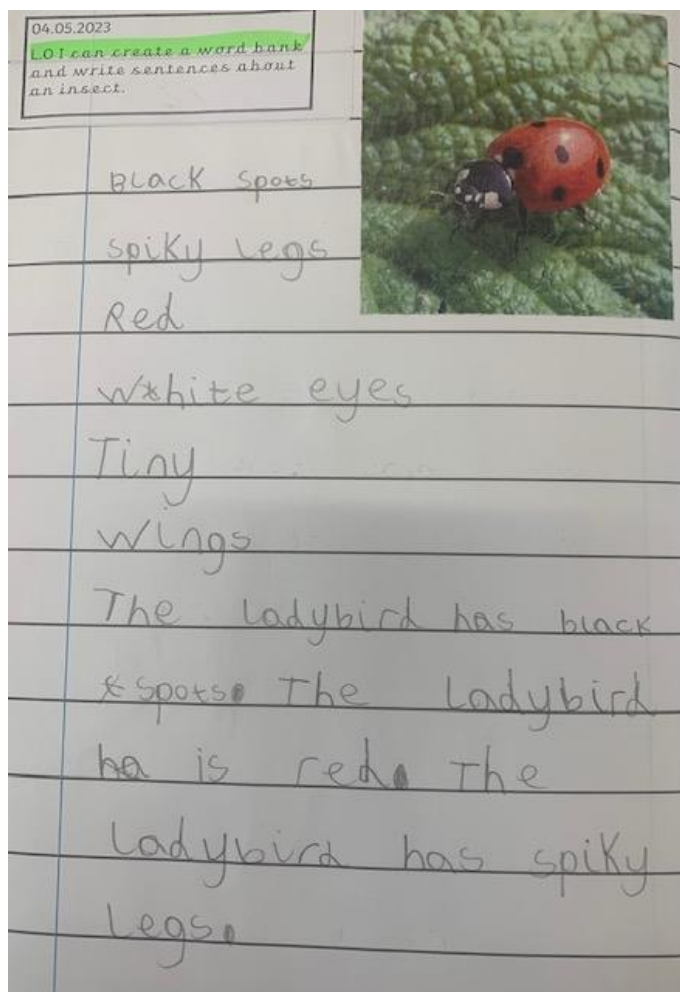 04.05.2023
LO I can create a word bank
and write sentences about
an insect.
Black spots
spiky legs
Red
White eyes
Tiny
wings
The ladybird has black
spots. The ladybird
ha is red. The
ladybird has spiky
legs.